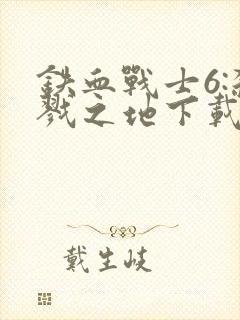 鉄血戰士6:
戮之地下載
戴生岐